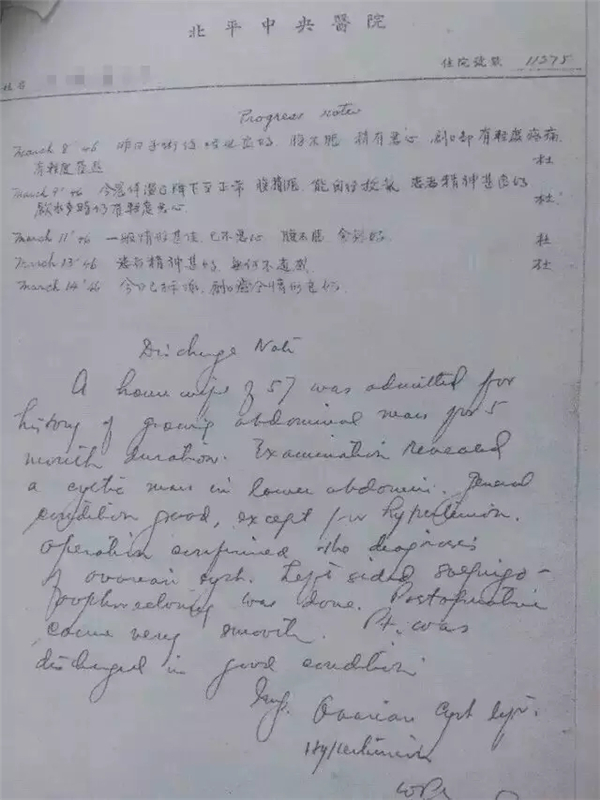 北平中央醫院
姓名
住院號數 11375
Progress Notes
March 8 '46 昨日手術後 良好, 腹不脹 稍有惡心, 創口部有輕度疼痛
杜
March 9 '46 今晨体溫已降下至正常 腹 能自行放氣 患者精神甚良好
飲水多時仍有輕度惡心. 杜
March 11 '46 一般情形甚佳, 已不惡心 腹不脹 食 好 杜
March 13 '46 患者精神甚好, 無何不適感 杜
March 14 '46 今日已拆線, 創口癒合情形良好.
Discharge Note
A housewife of 57 was admitted for
history of growing abdominal mass for 5
month duration. Examination revealed
a cystic mass in lower abdomen. General
condition good, except for hypertension.
Operation confirmed the diagnosis
of ovarian cyst. Left sided salpingo-
oophorectomy was done. Postoperative
course very smooth. Pt. was
discharged in good condition
Ovarian cyst left.
Hypertension